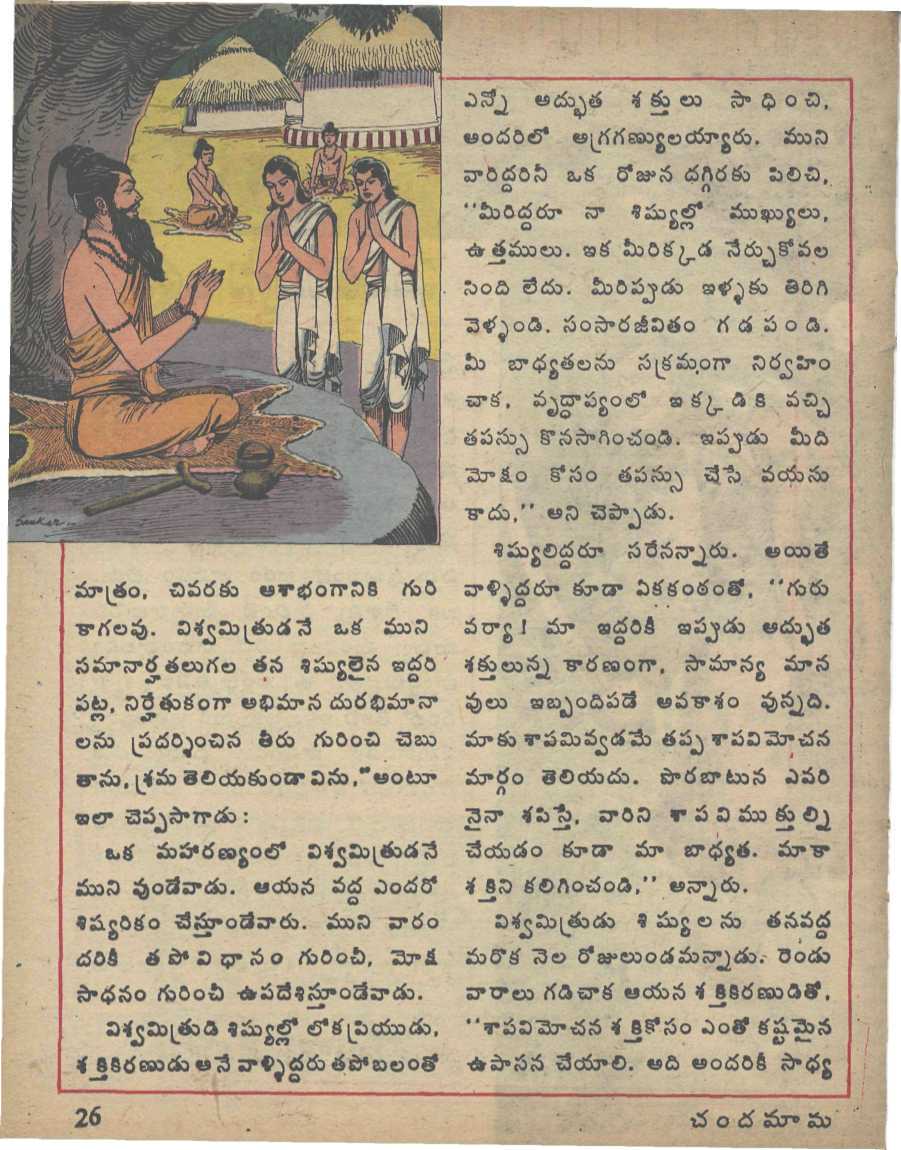 Sankar
మాత్రం, చివరకు ఆశాభంగానికి గురి
కాగలవు. విశ్వమిత్రుడనే ఒక ముని
సమానార్హతలుగల తన శిష్యులైన ఇద్దరి
పట్ల, నిర్హేతుకంగా అభిమాన దురభిమానా
లను ప్రదర్శించిన తీరు గురించి చెబు
తాను, శ్రమ తెలియకుండా విను,"అంటూ
ఇలా చెప్పసాగాడు:
ఒక మహారణ్యంలో విశ్వమిత్రుడనే
ముని వుండేవాడు. ఆయన వద్ద ఎందరో
శిష్యరికం చేస్తూండేవారు. ముని వారం
దరికీ తపోవిధానం గురించీ, మోక్ష
సాధనం గురించీ ఉపదేశిస్తూండేవాడు.
విశ్వమిత్రుడి శిష్యుల్లో లోకప్రియుడు,
శక్తికిరణుడు అనే వాళ్ళిద్దరు తపోబలంతో
ఎన్నో అద్భుత శక్తులు సాధించి,
అందరిలో అగ్రగణ్యులయ్యారు. ముని
వారిద్దరినీ ఒక రోజున దగ్గిరకు పిలిచి,
''మీరిద్దరూ నా శిష్యుల్లో ముఖ్యులు,
ఉత్తములు. ఇక మీరిక్కడ నేర్చుకోవల
సింది లేదు. మీరిప్పుడు ఇళ్ళకు తిరిగి
వెళ్ళండి. సంసారజీవితం గడపండి.
మీ బాధ్యతలను సక్రమంగా నిర్వహిం
చాక, వృద్ధాప్యంలో ఇక్కడికి వచ్చి
తపస్సు కొనసాగించండి. ఇప్పుడు మీది
మోక్షం కోసం తపస్సు చేసే వయసు
కాదు,'' అని చెప్పాడు.
శిష్యులిద్దరూ సరేనన్నారు. అయితే
వాళ్ళిద్దరూ కూడా ఏకకంఠంతో, ''గురు
వర్యా! మా ఇద్దరికీ ఇప్పుడు అద్భుత
శక్తులున్న కారణంగా, సామాన్య మాన
వులు ఇబ్బందిపడే అవకాశం వున్నది.
మాకు శాపమివ్వడమే తప్ప శాపవిమోచన
మార్గం తెలియదు. పొరబాటున ఎవరి
నైనా శపిస్తే, వారిని శాపవిముక్తుల్ని
చేయడం కూడా మా బాధ్యత. మాకా
శక్తిని కలిగించండి,'' అన్నారు.
విశ్వమిత్రుడు శిష్యులను తనవద్ద
మరొక నెల రోజులుండమన్నాడు. రెండు
వారాలు గడిచాక ఆయన శక్తికిరణుడితో,
''శాపవిమోచన శక్తికోసం ఎంతో కష్టమైన
ఉపాసన చేయాలి. అది అందరికీ సాధ్య
26
చందమామ